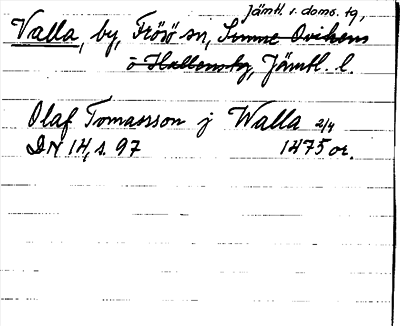 Jämtl. s. doms. tg,
Valla, by, Frösö sn, Sunne Ovikens
o Hallens tg, Jämtl. l.
Olaf Tomasson j Walla 2/4
DN 14, s. 97 1475 or.